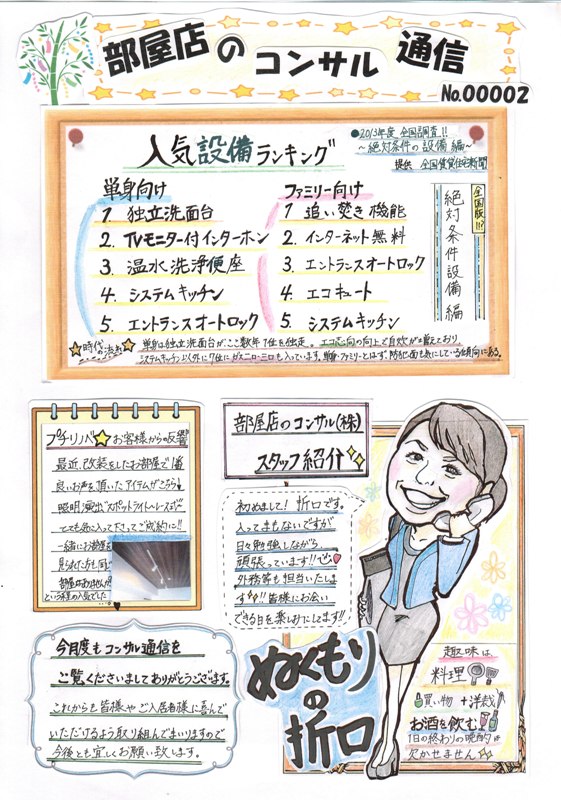 部屋店のコンサル通信
No.00002
人気設備ランキング
●2013年度 全国調査!!
~絶対条件の設備編~
提供 全国賃貸住宅新聞
単身向け
1. 独立洗面台
2. TVモニター付インターホン
3. 温水洗浄便座
4. システムキッチン
5. エントランスオートロック
ファミリー向け
1 追い焚き機能
2. インターネット無料
3. エントランスオートロック
4 エコキュート
5. システムキッチン
全国版!!?
絶対条件設備編
時代の流れ
単身は独立洗面台がここ数年1位を独走。エコ志向の向上で自炊が増えており
システムキッチン以外に7位にガスニロ・三口も入っています。単身・ファミリーとはず、防犯面も気にしている傾向にある。
プチリノベ★お客様からの反響
最近、改装をしたお部屋で1番
良いお声を頂いたアイテムがこちら
照明演出"スポットライトレール"
とても気に入って下さってご成約に!!
一緒にお部屋を
見られた方も同じ
という程の人気でした
部屋店のコンサル(株)
スタッフ紹介
初めまして!折口です。
入ってまもないですが
日々勉強しながら
頑張っています!!
外務等も担当いたしま
す!!皆様にお会い
できる日を楽しみにしてます!!
ぬくもりの折口
趣味は、
料理
買い物 + 洋裁
お酒を飲む
1日の終わりの晩酌は
欠かせません
今月度もコンサル通信を
ご覧くださいましてありがとうございます。
これからも皆様やご入居者様に喜んで
いただけるよう取り組んでまいりますので
今後とも宜しくお願い致します。